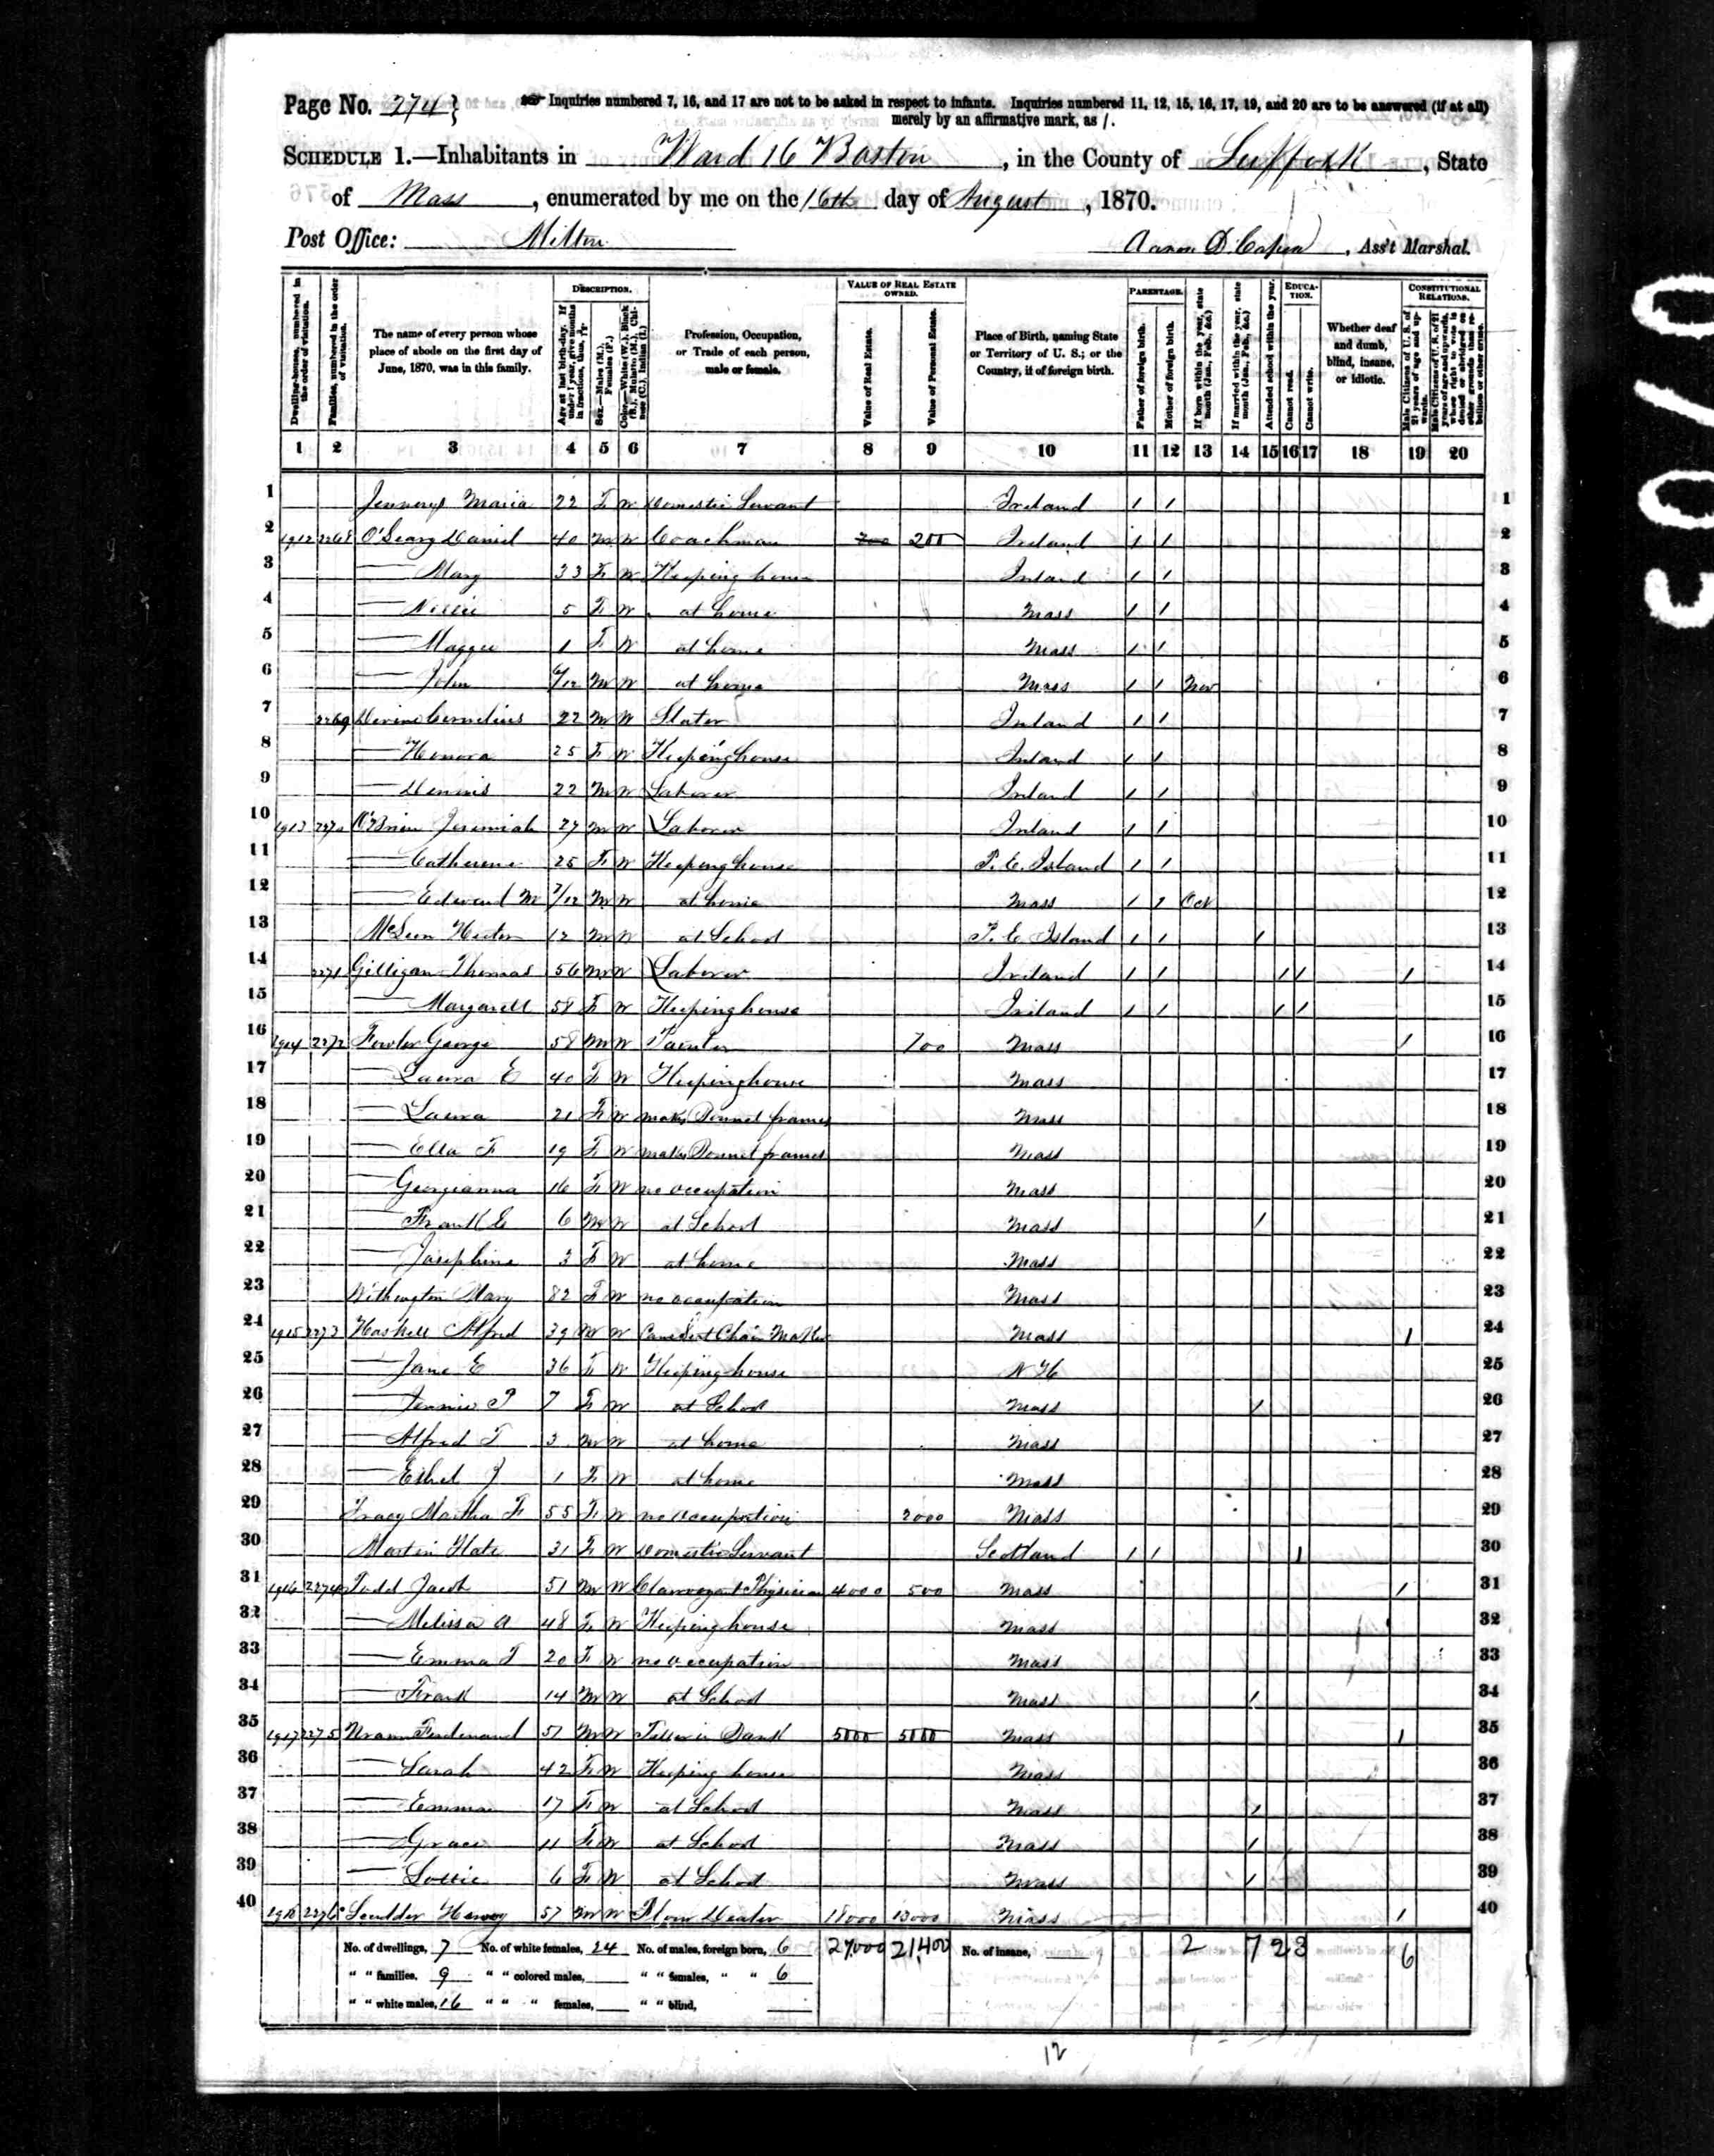 Page No. 274
Inquiries numbered 7, 16, and 17 are not to be asked in respect to infants. Inquiries numbered 11, 12, 15, 16, 17, 19, and 20 are to be answered (if at all)
merely by an affirmative mark, as /.
SCHEDULE 1.—Inhabitants in Ward 16 Boston, in the County of Suffolk, State
of Mass, enumerated by me on the 16th day of August, 1870.
Post Office: Milton
Aaron D. Capen, Ass't Marshal.
Dwelling-houses, numbered in the order of visitation.
Families, numbered in the order of visitation.
The name of every person whose place of abode on the first day of June, 1870, was in this family.
DESCRIPTION.
Age at last birth-day. If under 1 year, give months in fractions, thus,
Sex.—Males (M.), Females (F.)
Color.—White (W.), Black (B.), Mulatto (M.), Chinese (C.), Indian (I.)
Profession, Occupation, or Trade of each person, male or female.
VALUE OF REAL ESTATE OWNED.
Value of Real Estate.
Value of Personal Estate.
Place of Birth, naming State or Territory of U. S.; or the Country, if of foreign birth.
PARENTAGE.
Father of foreign birth.
Mother of foreign birth.
If born within the year, state month (Jan., Feb., &c.)
If married within the year, state month (Jan., Feb., &c.)
Attended school within the year.
EDUCATION.
Cannot read.
Cannot write.
Whether deaf and dumb, blind, insane, or idiotic.
CONSTITUTIONAL RELATIONS.
Male Citizens of U. S. of 21 years of age and upwards.
1 2 3 4 5 6 7 8 9 10 11 12 13 14 15 16 17 18 19 20
1 Maria 22 F W Domestic Servant Ireland / / 1
2 1912 2268 O'Leary Daniel 40 M W Coachman 200 Ireland / / 2
3 — Mary 33 F W Keeping house Ireland / / 3
4 — Nellie 5 F W at home Mass / / 4
5 — Maggie 1 F W at home Mass / / 5
6 — John 6/12 M W at home Mass / / Nov 6
7 2269 Devine Cornelius 22 M W Slater Ireland / / 7
8 — Honora 25 F W Keeping house Ireland / / 8
9 — Dennis 22 M W Laborer Ireland / / 9
10 1913 2270 O'Brien Jeremiah 27 M W Laborer Ireland / / 10
11 — Catherine 25 F W Keeping house P. E. Island / / 11
12 — Edward M 7/12 M W at home Mass / / Oct 12
13 Hector 12 M W at School P. E. Island / / / 13
14 2271 Gilligan Thomas 56 M W Laborer Ireland / / / / / 14
15 — Margarett 58 F W Keeping house Ireland / / / / 15
16 1914 2272 Fowler George 58 M W Painter 700 Mass / 16
17 — Laura E 40 F W Keeping house Mass 17
18 — Laura 21 F W makes Bonnet frames Mass 18
19 — Ella F 19 F W makes Bonnet frames Mass 19
20 — Georgianna 16 F W no occupation Mass 20
21 — Frank E 6 M W at School Mass / 21
22 — Josephine 3 F W at home Mass 22
23 Withington Mary 82 F W no occupation Mass 23
24 1915 2273 Haskell Alfred 39 M W Cane Seat Chair Maker Mass / 24
25 — Jane E 36 F W Keeping house N H 25
26 — Jennie P 7 F W at School Mass / 26
27 — Alfred T 3 M W at home Mass 27
28 — Ethel J 1 F W at home Mass 28
29 Tracy Martha F 55 F W no occupation 2000 Mass 29
30 Martin Kate 31 F W Domestic Servant Scotland / / / 30
31 1916 2274 Todd Jacob 51 M W Clairvoyant Physician 4000 500 Mass / 31
32 — Melissa A 48 F W Keeping house Mass 32
33 — Emma T 20 F W no occupation Mass 33
34 — Frank 14 M W at School Mass / 34
35 1917 2275 Ferdinand 51 M W Teller in Bank 5000 5000 Mass / 35
36 — Sarah 42 F W Keeping house Mass 36
37 — Emma 17 F W at School Mass / 37
38 — Grace 11 F W at School Mass / 38
39 — Lottie 6 F W at School Mass / 39
40 1918 2276 Scudder Harvey 57 M W Flour Dealer 18000 13000 Mass / 40
No. of dwellings, 7 No. of white females, 24 No. of males, foreign born, 6 27,000 21,400 No. of insane, 2 7 2 3 6
" " families, 9 " " colored males, " " females, " " 6
" " white males, 16 " " " females, " " blind,
12